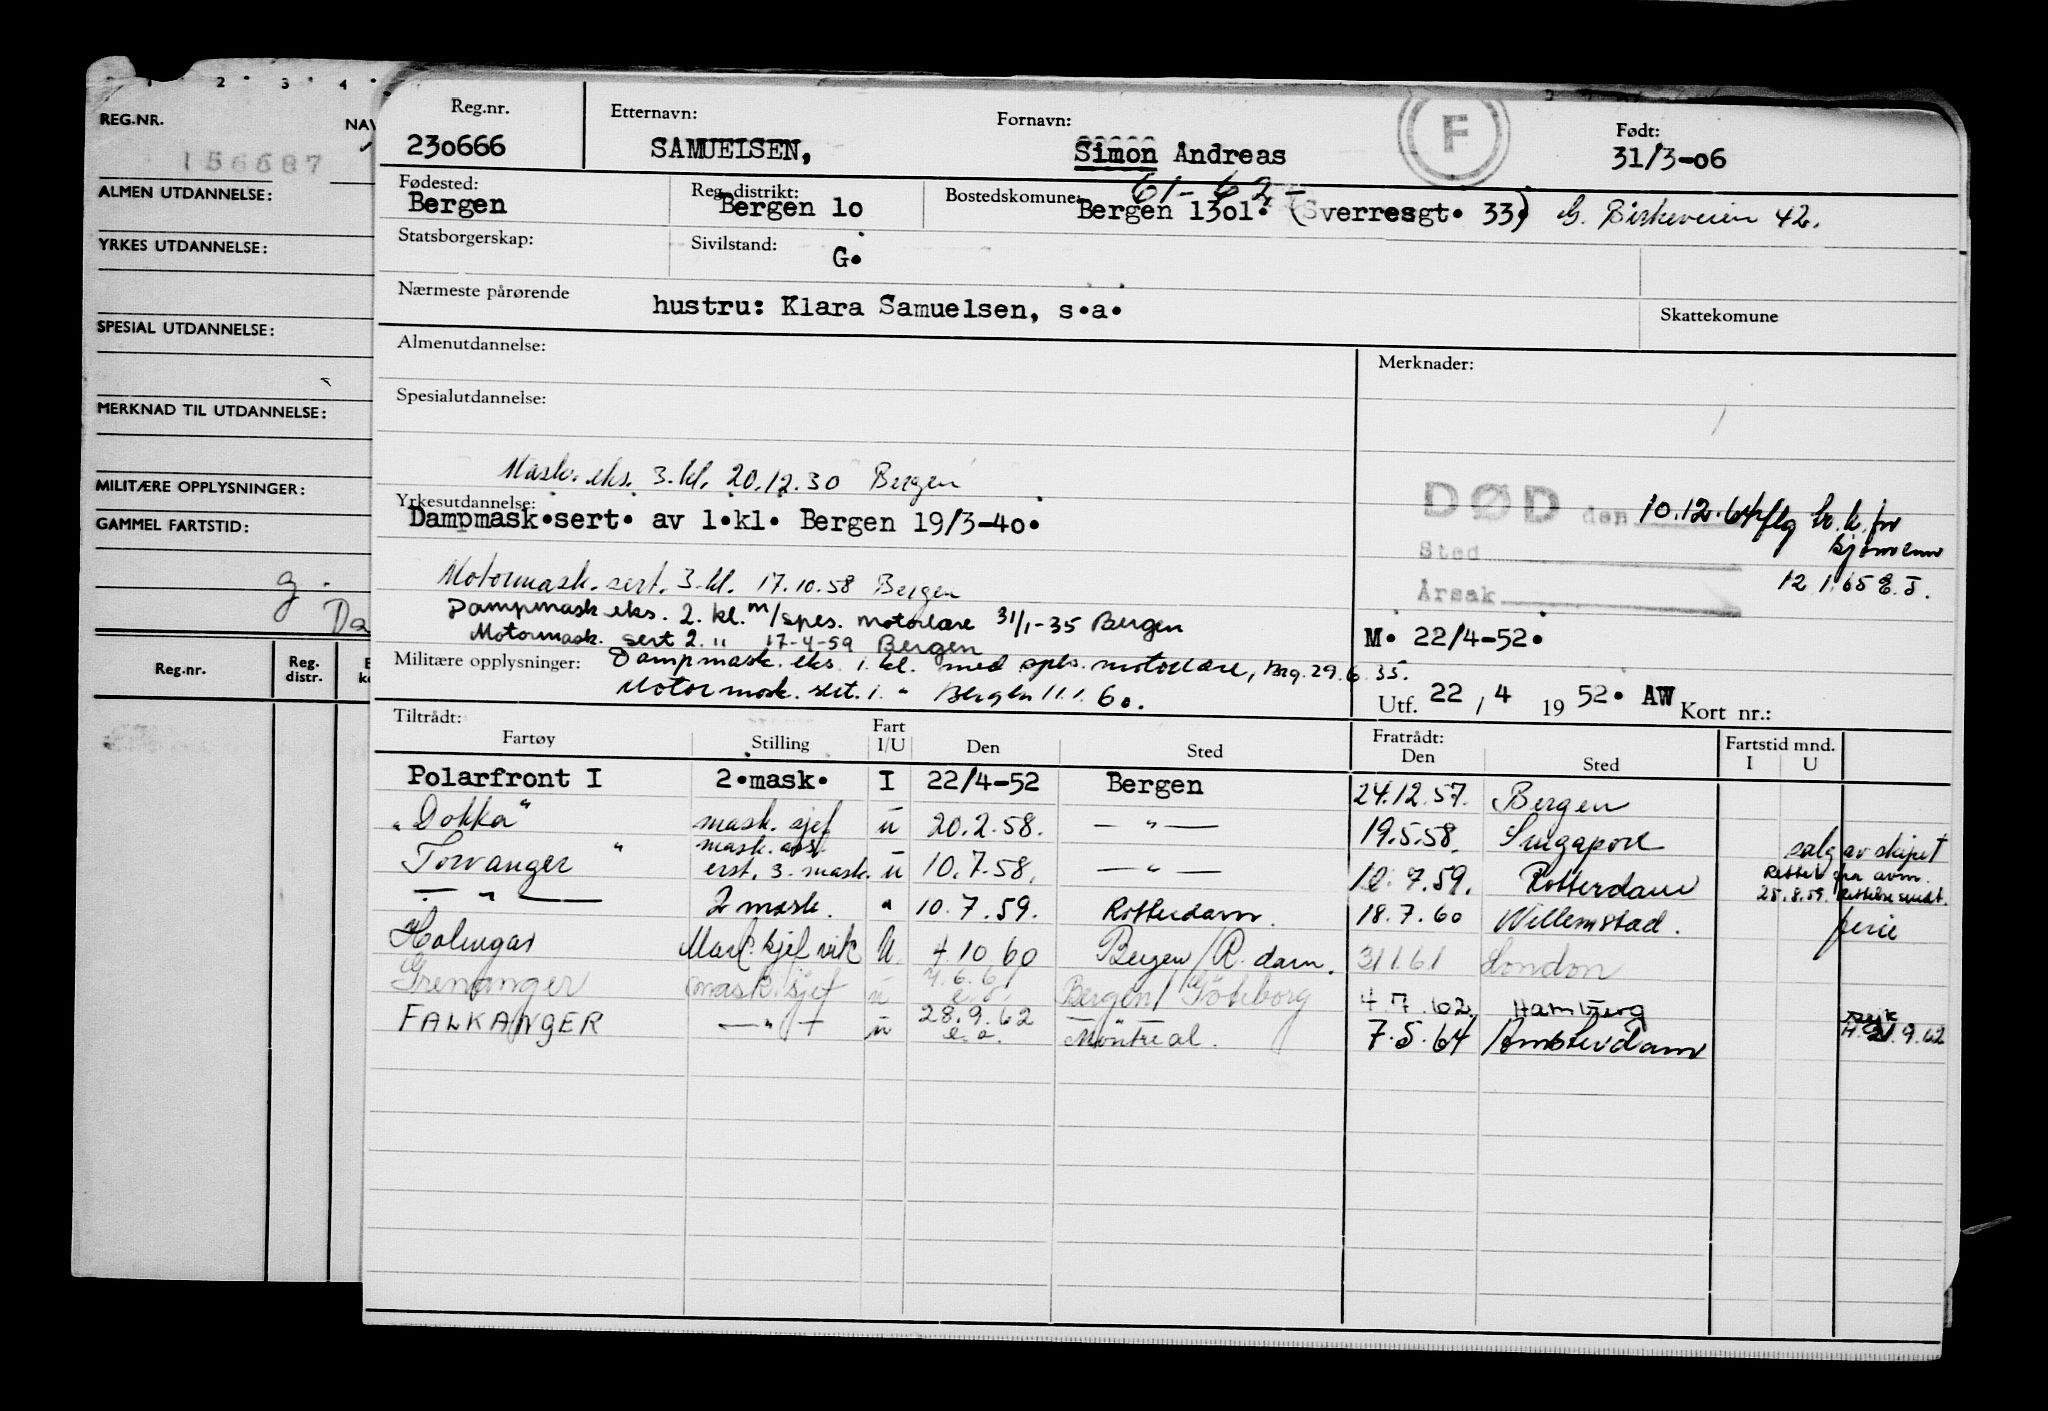 1 2 3 4
REG.NR.
NAV
156687
ALMEN UTDANNELSE:
YRKES UTDANNELSE:
SPESIAL UTDANNELSE:
MERKNAD TIL UTDANNELSE:
MILITÆRE OPPLYSNINGER:
GAMMEL FARTSTID:
g.
Da
Reg.nr. Reg. distr.
Reg.nr. Etternavn: Fornavn: F Født:
230666 SAMUELSEN, Simon Andreas 31/3-06
Fødested: Reg. distrikt: Bostedskomune: 61-62
Bergen Bergen 10 Bergen 1301. (Sverresgt. 33) G. Birkeveien 42.
Statsborgerskap: Sivilstand: G.
Nærmeste pårørende hustru: Klara Samuelsen, s.a. Skattekomune
Almenutdannelse: Merknader:
Spesialutdannelse:
Mask. eks. 3. kl. 20.12.30 Bergen
DØD den 10.12.64 iflg br. k. for sjømenn
Sted
12.1.65 E.J.
Årsak
Yrkesutdannelse:
Dampmask.sert. av 1.kl. Bergen 19/3-40.
Motormask. sert. 3. kl. 17.10.58 Bergen
Dampmask eks. 2. kl. m/spes. motorlære 31/1-35 Bergen
Motormask. sert 2. " 17-4-59 Bergen
M. 22/4-52.
Militære opplysninger: Dampmask. eks. 1. kl. med spes. motorlære, Brg. 29.6.35.
Motormask. sert. 1. " Bergen 11.1.60.
Utf. 22 / 4 1952. AW Kort nr.:
Tiltrådt: Fratrådt: Fartstid mnd.
Fartøy Stilling Fart I/U Den Sted Den Sted I U
Polarfront I 2.mask. I 22/4-52 Bergen 24.12.57. Bergen
"Dokka" mask. sjef u 20.2.58. — " — 19.5.58. Singapore salg av skipet
Torvanger " mask. ass. erst. 3. mask. u 10.7.58. — " — 10.7.59. Rotterdam Rettet fra avm. 25.8.59.
— " — 2 mask. " 10.7.59. Rotterdam. 18.7.60 Willemstad. ferie
Holmgar Mask. sjef vik U 4 10 60 Bergen/R.dam. 31.1.61 London
Grenanger mask. sjef u 4.6.61 e.o. Bergen/Göteborg 4 7. 62. Hamburg syk
FALKANGER — " — u 28.9.62 e.o. Montreal. 7.5.64 Amsterdam 21.9.62